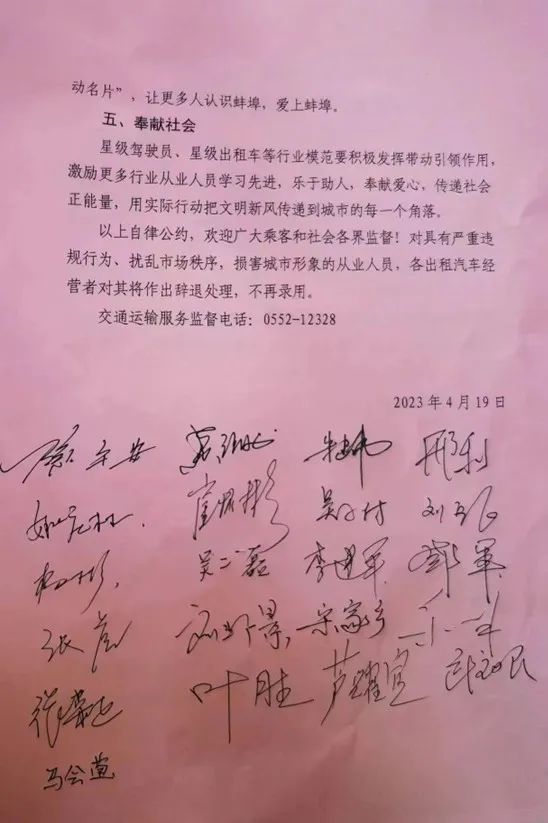 动名片”，让更多人认识蚌埠，爱上蚌埠。
五、奉献社会
星级驾驶员、星级出租车等行业模范要积极发挥带动引领作用，
激励更多行业从业人员学习先进，乐于助人，奉献爱心，传递社会
正能量，用实际行动把文明新风传递到城市的每一个角落。
以上自律公约，欢迎广大乘客和社会各界监督！对具有严重违
规行为、扰乱市场秩序，损害城市形象的从业人员，各出租汽车经
营者对其将作出辞退处理，不再录用。
交通运输服务监督电话：0552-12328
2023年4月19日
邢利
吴二磊 李建军 邓军
张彦 宋家乡
叶胜 芦耀宜
马会党